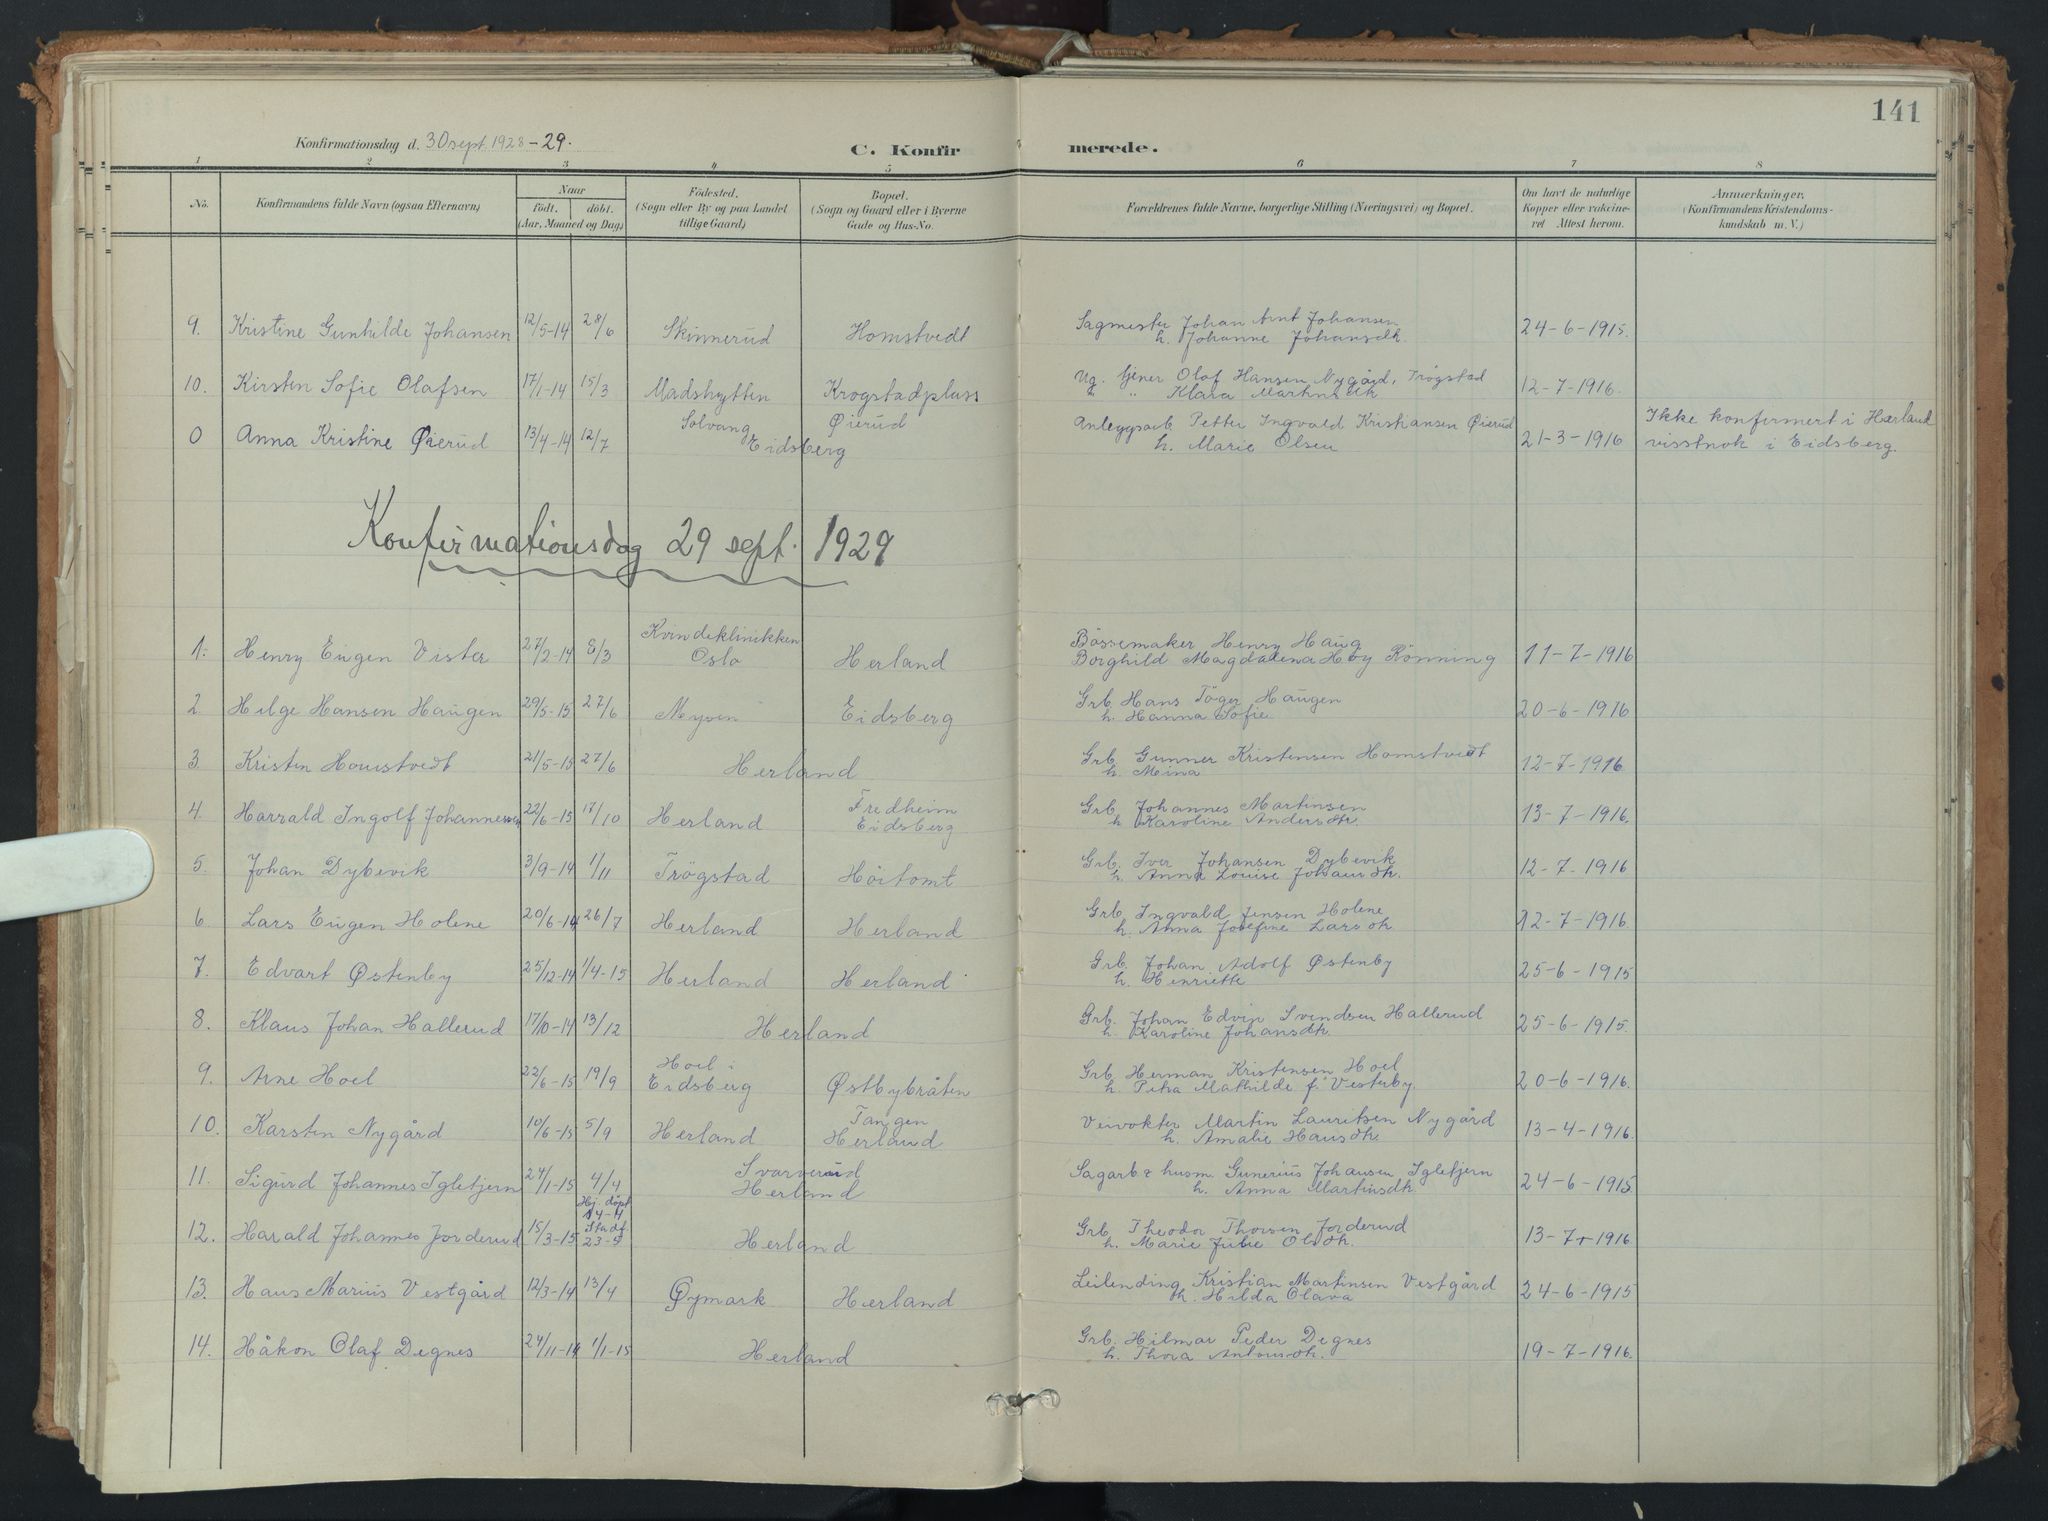 141
Konfirmationsdag d. 30 sept. 1928 - 29.
C. Konfirmerede.
1 2 3 4 5 6 7 8
No. Konfirmandens fulde Navn (ogsaa Efternavn) Naar födt. döbt. (Aar, Maaned og Dag) Födested. (Sogn eller By og paa Landet tillige Gaard) Bopæl. (Sogn og Gaard eller i Byerne Gade og Hus-No. Forældrenes fulde Navne, borgerlige Stilling (Næringsvei) og Bopæl. Om havt de naturlige Kopper eller vaccineret Attest herom. Anmærkninger. (Konfirmandens Kristendomskundskab m. V.)
9. Kristine Gunhilde Johansen 12/5-14 28/6 Skinnerud Homstvedt Sagmester Johan Arnt Johansen 24-6-1915.
h. Johanne Johansdtr.
10. Kirsten Sofie Olafsen 17/1-14 15/3 Madshytten Krogstadplass Ug. tjener Olaf Hansen Nygård, Trögstad 12-7-1916.
" " Klara Martinsdtr
0 Anna Kristine Øierud 13/4-14 12/7 Solvang Eidsberg Øierud Anleggsarb. Petter Ingvald Kristiansen Øierud 21-3-1916 Ikke konfermert i Hærland
h. Marie Olsen visstnok i Eidsberg.
Konfirmationsdag 29 sept. 1929
1. Henry Eugen Vister 27/2-14 8/3 Kvindeklinikken Oslo Herland Bössemaker Henry Haug 11-7-1916
Borghild Magdalena Høy Rönning
2. Helge Hansen Haugen 29/5-15 27/6 Mysen Eidsberg Grb. Hans Töger Haugen 20-6-1916
h. Hanna Sofie
3. Kristen Homstvedt 21/5-15 27/6 Herland Grb. Gunner Kristensen Homstvedt 12-7-1916
h. Mina
4. Harrald Ingolf Johannessen 22/6-15 17/10 Herland Fredheim Eidsberg Grb. Johannes Martinsen 13-7-1916.
h. Karoline Andersdtr.
5. Johan Dybevik 3/9-14 1/11 Trögstad Höitomt Grb. Iver Johansen Dybevik 12-7-1916
h. Anna Louise Johansdtr.
6 Lars Eugen Holene 20/6-14 26/7 Herland Herland Grb. Ingvald Jensen Holene 12-7-1916
h. Anna Josefine Larsdtr
7. Edvart Østenby 25/12-14 1/4-15 Herland Herland Grb. Johan Adolf Østenby 25-6-1915
h. Henriette
8. Klaus Johan Hallerud 17/10-14 13/12 Herland Grb. Johan Edvin Svendsen Hallerud 25-6-1915.
h. Karoline Johansdtr.
9. Arne Hoel 22/6-15 19/9 Hoel i Eidsberg Østbybråten Grb. Herman Kristensen Hoel 20-6-1916.
h. Petra Mathilde f. Vesterby.
10. Karsten Nygård 10/6-15 5/9 Herland Tangen Herland Veivokter Martin Lauritsen Nygård 13-4-1916.
h. Amalie Hansdtr.
11. Sigurd Johannes Igletjern 24/1-15 4/4 Svarverud Herland Sagarb & husm. Gunerius Johansen Igletjern 24-6-1915
h. Anna Martinsdtr.
12. Harald Johannes Jorderud 15/3-15 Hj. döpt 14-4 Stadf. 23-5 Herland Grb. Theodor Thorsen Jorderud 13-7-1916
h. Marie Julie Olsdtr.
13. Hans Marius Vestgård 12/3-14 13/4 Øymark Herland Leilending Kristian Martinsen Vestgård 24-6-1915
h. Hilda Olava
14. Håkon Olaf Degnes 24/11-14 1/1-15 Herland Grb. Hilmar Peder Degnes 19-7-1916.
h. Thora Antonsdtr.